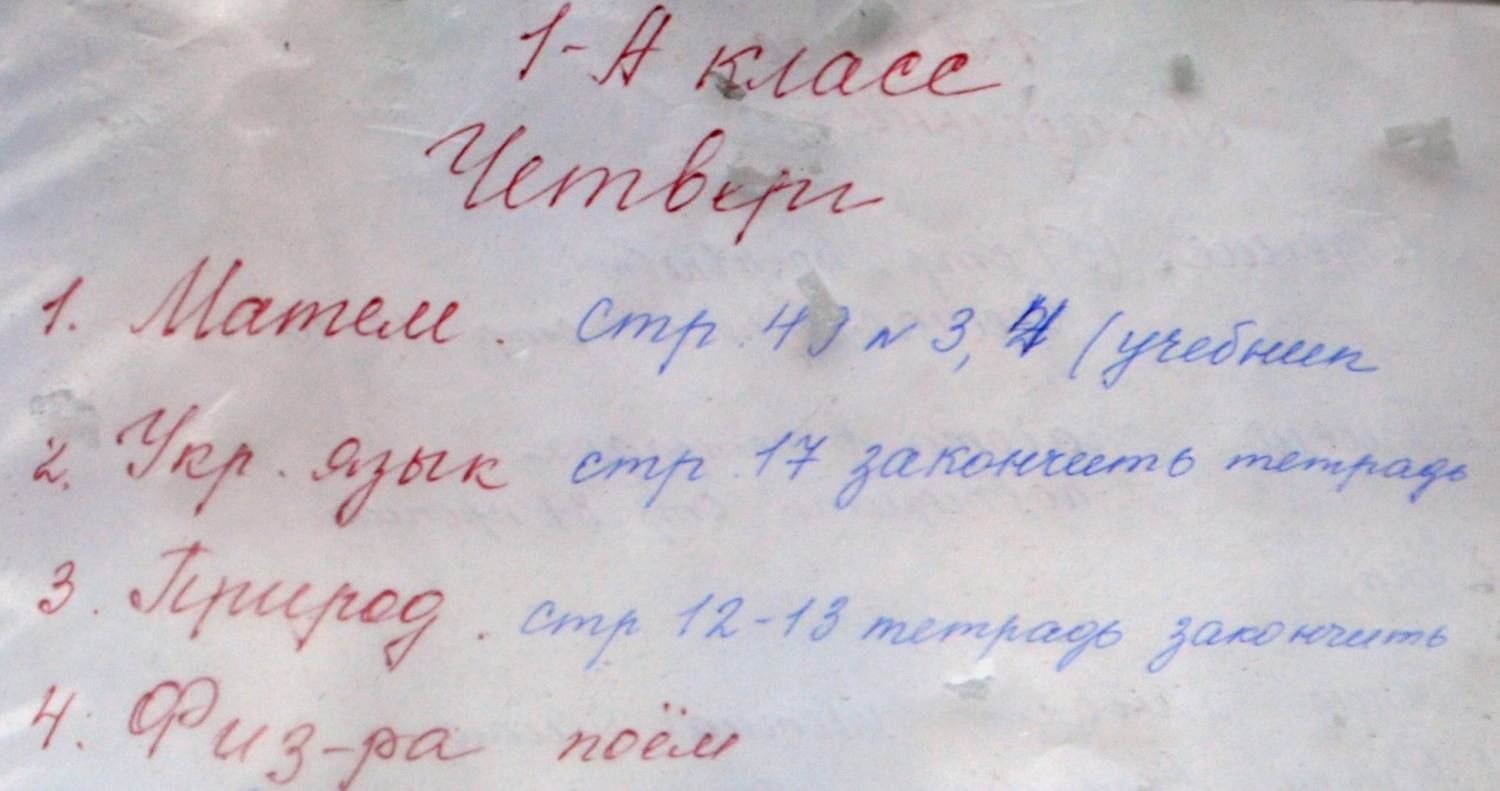 1-А класс
Четверг
1. Матем. стр. 49 № 3, 4 (учебник
2. Укр. язык стр. 17 закончить тетрадь
3. Природ. стр 12-13 тетрадь закончить
4. Физ-ра поём